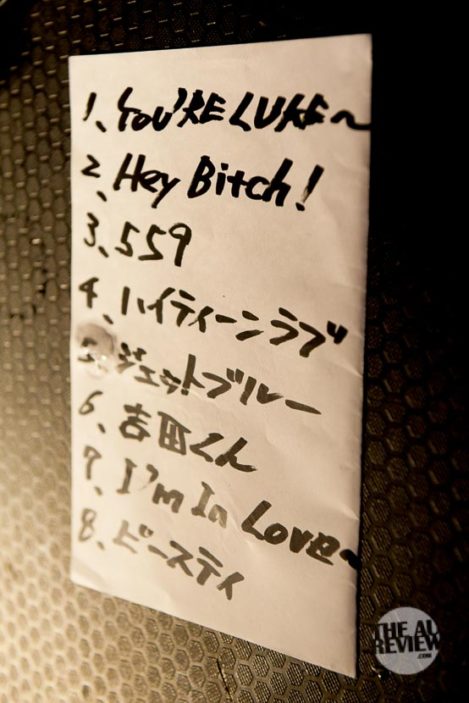 1、YOU'RE LUKE〜
2、Hey Bitch!
3、559
4、ハイティーンラブ
5、ジェットブルー
6、吉田くん
7、I'm In Love〜
8、ビースティ
THE AU
REVIEW
.COM